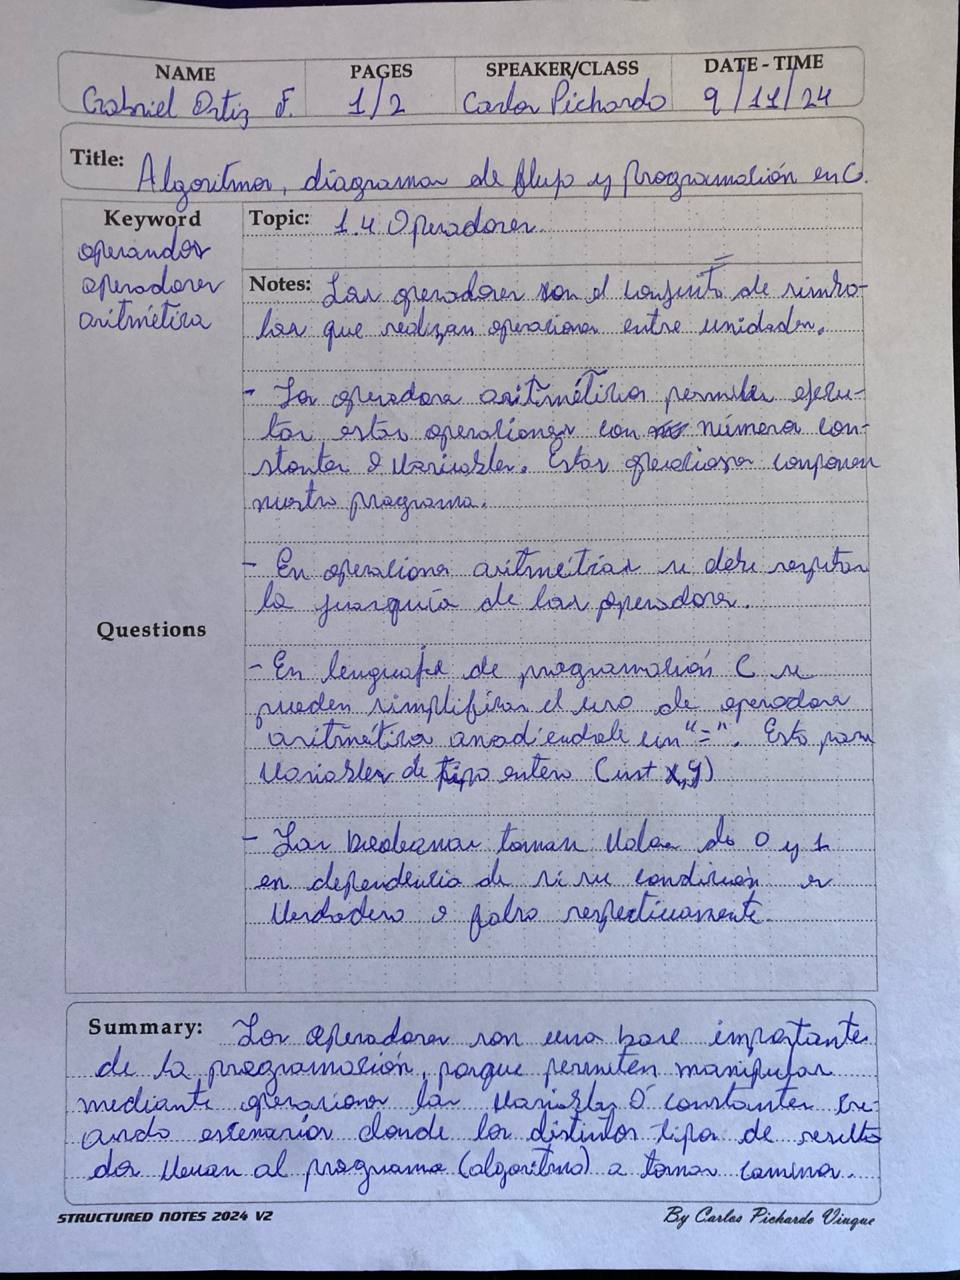 NAME PAGES SPEAKER/CLASS DATE - TIME
Gabriel Ortiz F. 1/2 Carlos Pichardo 9/11/24
Title: Algoritmos, diagramas de flujo y programación en C.
Keyword
operandos
operadores
aritmética
Topic: 1.4 Operadores.
Notes: Los operadores son el conjunto de símbo-
los que realizan operaciones entre unidades.
- Los operadores aritméticos permiten ejecu-
tar estas operaciones con números con-
stantes o variables. Estas operaciones componen
nuestro programa.
- En operaciones aritméticas se debe respetar
la jerarquía de los operadores.
Questions
- En lenguaje de programación C se
pueden simplificar el uso de operadores
aritméticos anadiendole un "=". Esto para
variables de tipo entero (int x,y)
- Las booleanas toman valores de 0 y 1
en dependencia de si su condición es
verdadero o falso respectivamente
Summary: Los operadores son una base importante
de la programación, porque permiten manipular
mediante operaciones las variables o constantes cre-
ando escenarios donde los distintos tipos de resulta
dos llevan al programa (algoritmo) a tomar caminos.
STRUCTURED NOTES 2024 V2
By Carlos Pichardo Viuque